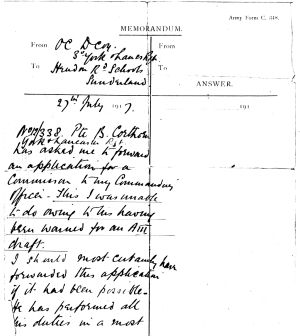 Army Form C. 348.
MEMORANDUM.
From OC D Coy.
3rd York & Lancs Regt
To Hendon Rd Schools
Sunderland
From
To
ANSWER.
27th July 1917.
191
Pte B.
York & Lancaster Rgt
has asked me to forward
an application for a
Commission to my Commanding
Officer. This I was unable
to do owing to his having
been warned for an AIII
draft.
I should most certainly have
forwarded this application
if it had been possible.
He has performed all
his duties in a most